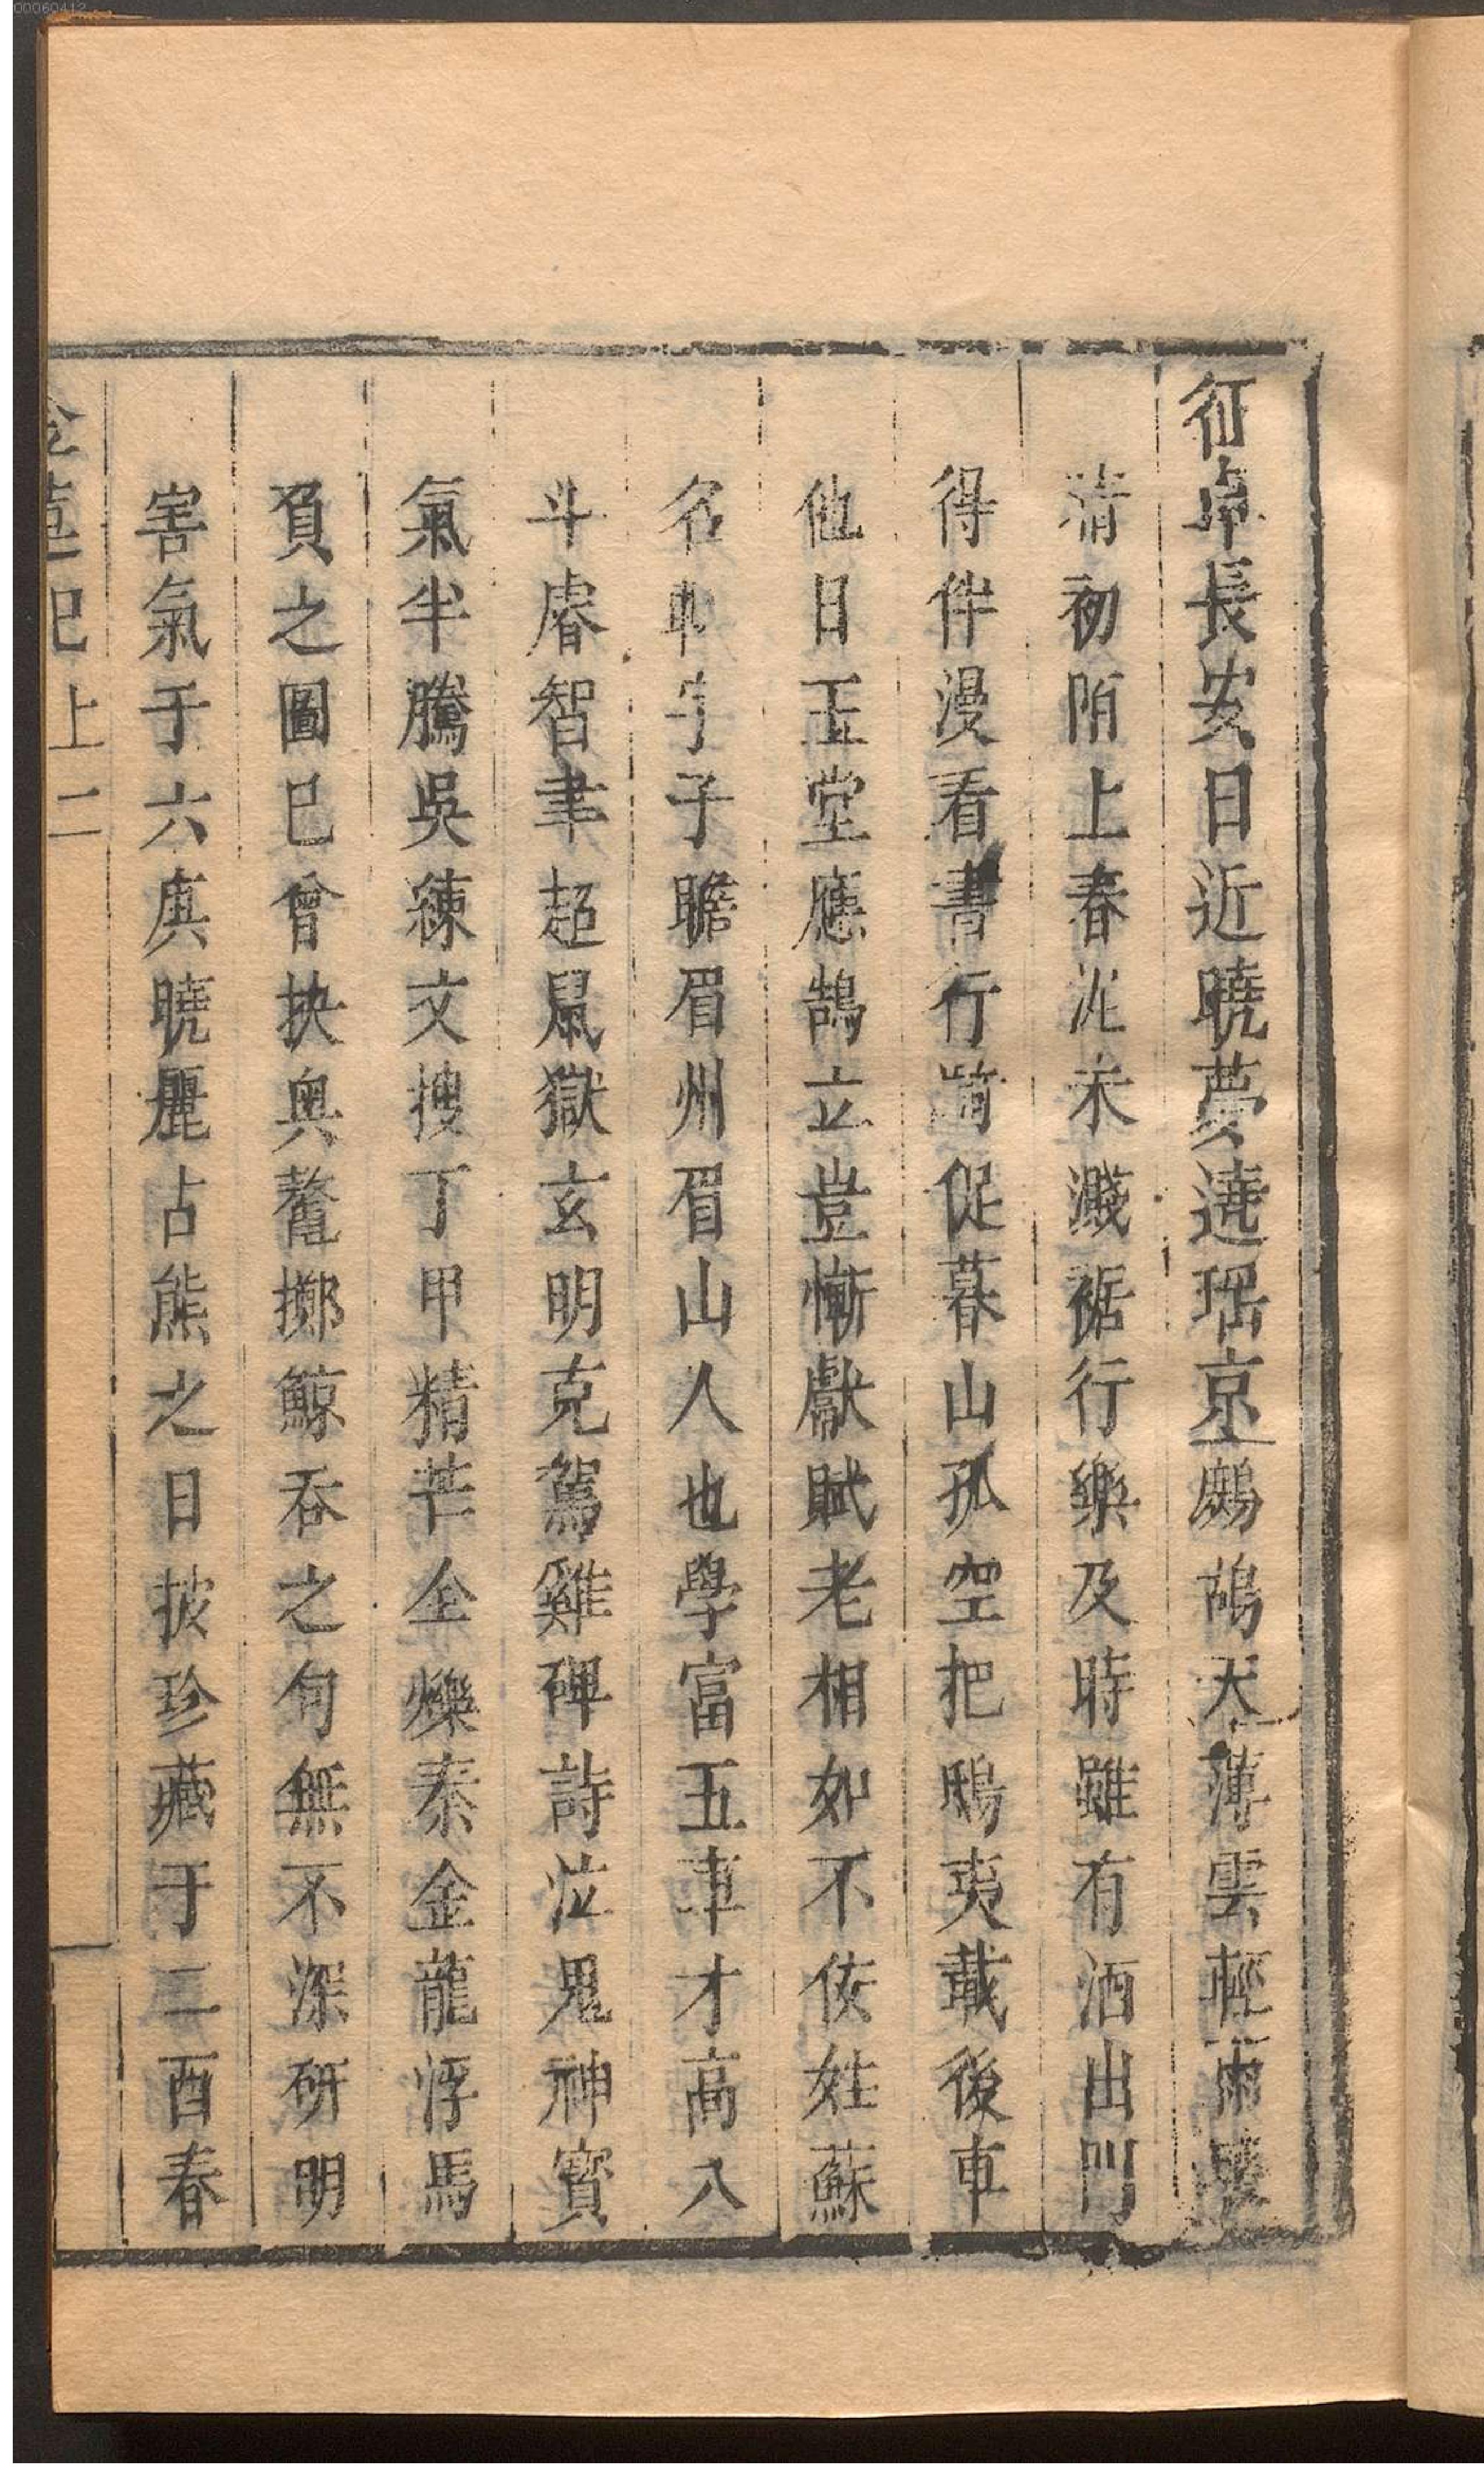 征卓長安日近曉夢遶瑶京鷓鴣天薄雲輕雨曉
清初陌上春泥未濺裾行樂及時雖有酒出門
得伴漫看書行篋促暮山孤空把鴟夷載後車
他日玉堂應鵠立豈慚獻賦老相如不佞姓蘇
名軾字子瞻眉州眉山人也學富五車才高八
斗睿智聿超鼠獄玄明克駕雞碑詩泣鬼神寳
氣半騰吳練文搜丁甲精芒全爍秦金龍浮馬
負之圖已曾抉奥鰲擲鯨呑之句無不深研明
害氣于六庚曉麗占熊之日披珍藏于二酉春
記上二
00060412